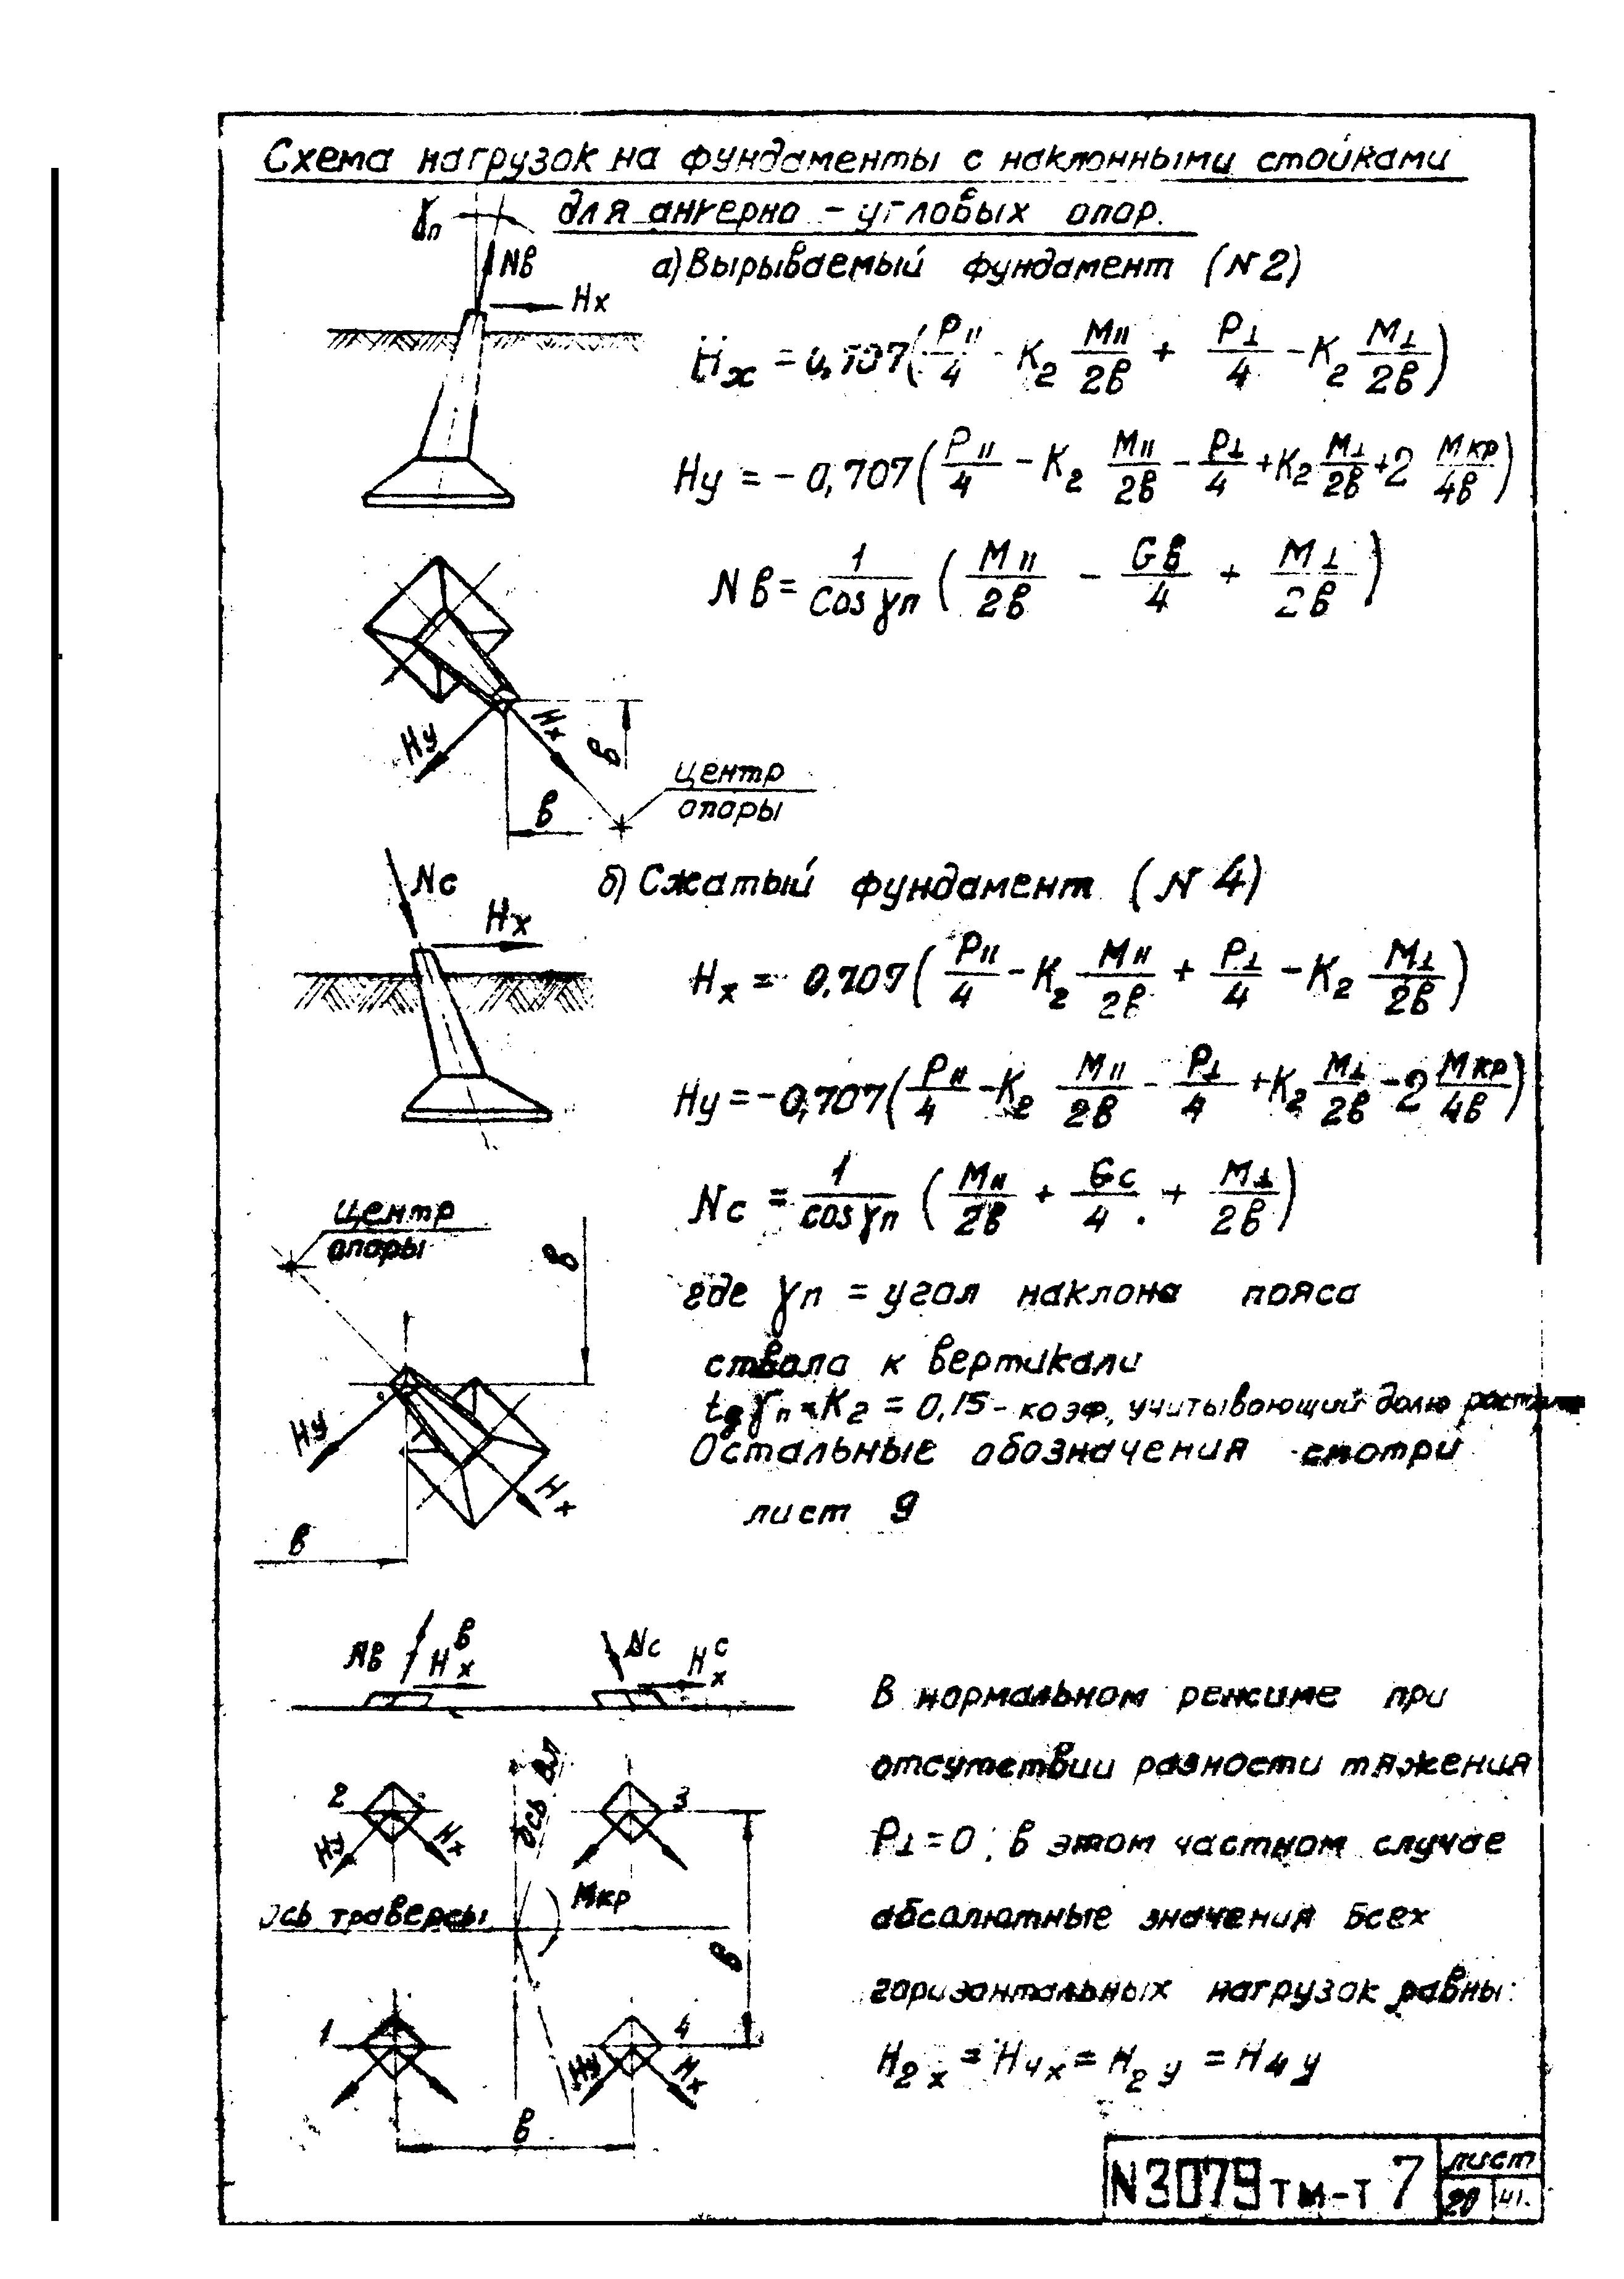 Схема нагрузок на фундаменты с наклонными стойками
для анкерно - угловых опор.
γп
Nв
Нх
а) Вырываемый фундамент (N2)
Нх = 0,707 (P॥/4 - К2 М॥/2в + Р⊥/4 - К2 М⊥/2в)
Ну = - 0,707 (P॥/4 - К2 М॥/2в - Р⊥/4 + К2 М⊥/2в + 2 Мкр/4в)
Nв = 1/Cos γп (М॥/2в - Gв/4 + М⊥/2в)
Ну
Нх
в
в
центр
опоры
Nс
Нх
б) Сжатый фундамент (N 4)
Нх = 0,707 (P॥/4 - К2 М॥/2в + Р⊥/4 - К2 М⊥/2в)
Ну = - 0,707 (P॥/4 - К2 М॥/2в - Р⊥/4 + К2 М⊥/2в - 2 Мкр/4в)
Nс = 1/cos γп (М॥/2в + Gс/4 + М⊥/2в)
центр
опоры
в
Ну
Нх
в
где γп = угол наклона пояса
ствола к вертикали
tg γп = К2 = 0,15 - коэф, учитывающий долю
Остальные обозначения смотри
лист 9
Nв
Н в х
Nс
Н с х
2
3
Ну
Нх
ось ВЛ
Мкр
ось траверсы
в
1
4
Ну
Нх
в
В нормальном режиме при
отсутствии разности тяжения
Р⊥ = 0, в этом частном случае
абсалютные значения всех
горизонтальных нагрузок равны:
Н2х = Н4х = Н2у = Н4у
N3079тм-т 7
лист
20
41.